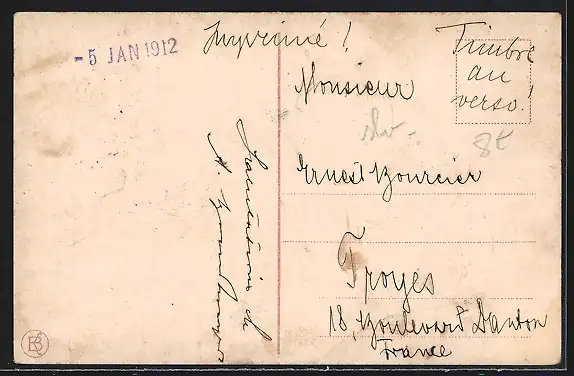 -5 JAN 1912
Imprimé !
Timbre
au
verso !
Monsieur
Ernest Bourcier
Troyes
18, Boulevard Danton
France
Salutations de